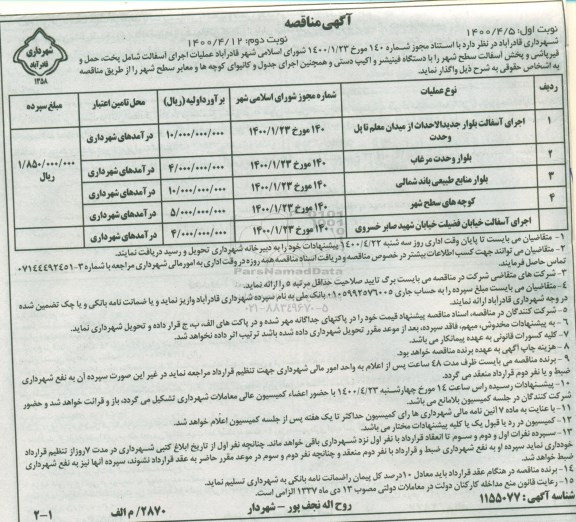 آگهی مناقصه
نوبت اول: ۱۴۰۰/۴/۵
نوبت دوم: ۱۴۰۰/۴/۱۲
شهرداری
قادرآباد
۱۳۵۸
شهرداری قادرآباد در نظر دارد با استناد مجوز شماره ۱۴۰ مورخ ۱۴۰۰/۱/۲۳ شورای اسلامی شهر قادرآباد عملیات اجرای آسفالت شامل پخت، حمل و
قیرپاشی و پخش آسفالت سطح شهر را با دستگاه فینیشر و اکیپ دستی و همچنین اجرای جدول و کانیوای کوچه ها و معابر سطح شهر را از طریق مناقصه
به اشخاص حقوقی به شرح ذیل واگذار نماید.
ردیف نوع عملیات شماره مجوز شورای اسلامی شهر برآورد اولیه (ریال) محل تامین اعتبار مبلغ سپرده
۱ اجرای آسفالت بلوار جدیدالاحداث از میدان معلم تا پل وحدت ۱۴۰ مورخ ۱۴۰۰/۱/۲۳ ۱۰/۰۰۰/۰۰۰/۰۰۰ درآمدهای شهرداری ۱/۸۵۰/۰۰۰/۰۰۰ ریال
۲ بلوار وحدت مرغاب ۱۴۰ مورخ ۱۴۰۰/۱/۲۳ ۴/۰۰۰/۰۰۰/۰۰۰ درآمدهای شهرداری
۳ بلوار منابع طبیعی باند شمالی ۱۴۰ مورخ ۱۴۰۰/۱/۲۳ ۱۰/۰۰۰/۰۰۰/۰۰۰ درآمدهای شهرداری
۴ کوچه های سطح شهر ۱۴۰ مورخ ۱۴۰۰/۱/۲۳ ۵/۰۰۰/۰۰۰/۰۰۰ درآمدهای شهرداری
اجرای آسفالت خیابان فضیلت خیابان شهید صابر خسروی ۱۴۰ مورخ ۱۴۰۰/۱/۲۳ ۴/۰۰۰/۰۰۰/۰۰۰ درآمدهای شهرداری
۱- متقاضیان می بایست تا پایان وقت اداری روز سه شنبه ۱۴۰۰/۴/۲۲ پیشنهادات خود را به دبیرخانه شهرداری تحویل و رسید دریافت نمایند.
۲- متقاضیان می توانند جهت کسب اطلاعات بیشتر در خصوص مناقصه و دریافت اسناد مناقصه همه روزه در وقت اداری به امور مالی شهرداری مراجعه با شماره ۳-۰۷۱۴۴۴۹۲۴۵۱
تماس حاصل فرمایند.
۳- شرکت های متقاضی شرکت در مناقصه می بایست برگ تایید صلاحیت حداقل مرتبه ۵ را ارائه نماید.
۴- متقاضیان می بایست مبلغ سپرده را به حساب جاری ۰۱۰۵۹۹۲۵۷۶۰۰۵ بانک ملی به نام سپرده شهرداری قادرآباد واریز نماید و یا ضمانت نامه بانکی و یا چک تضمین شده
در وجه شهرداری قادرآباد ارائه نمایند.
۵- شرکت کنندگان در مناقصه، اسناد مناقصه پیشنهاد قیمت خود را در پاکتهای جداگانه مهر شده و در پاکت های الف، ب، ج قرار داده و تحویل شهرداری نماید.
۶- به پیشنهادات مخدوش، مبهم، فاقد سپرده، بعد از موعد مقرر تحویل شهرداری داده شده باسد ترتیب اثر داده نخواهد شد.
۷- کلیه کسورات قانونی به عهده پیمانکار می باشد.
۸- هزینه چاپ آگهی به عهده برنده مناقصه خواهد بود.
۹- برنده مناقصه می بایست ظرف مدت ۴۸ ساعت پس از اعلام به واحد امور مالی شهرداری جهت تنظیم قرارداد مراجعه نماید در غیر این صورت سپرده آن به نفع شهرداری
ضبط و یا نفر دوم قرارداد منعقد می گردد.
۱۰- پیشنهادات رسیده راس ساعت ۱۴ مورخ چهارشنبه ۱۴۰۰/۴/۲۳ با حضور اعضاء کمیسیون عالی معاملات شهرداری تشکیل می گردد، باز و قرائت خواهد شد و حضور
شرکت کنندگان در جلسه کمیسیون بلامانع می باشد.
۱۱- با عنایت به ماده ۷ آئین نامه مالی شهرداری ها رای کمیسیون حداکثر تا یک هفته پس از جلسه کمیسیون اعلام خواهد شد.
۱۲- کمیسیون در رد یا قبول یک یا کلیه پیشنهادات مختار می باشد.
۱۳- سپرده نفرات اول و دوم و سوم تا انعقاد قرارداد با نفر اول نزد شهرداری باقی خواهد ماند. چنانچه نفر اول از تاریخ ابلاغ کتبی شهرداری در مدت ۷ روز از تنظیم قرارداد
خودداری نماید سپرده او به نفع شهرداری ضبط و قرارداد با نفر دوم منعقد و چنانچه نفر دوم و سوم در موعد مقرر حاضر به عقد قرارداد نشوند، سپرده آنها نیز به نفع شهرداری
ضبط خواهد شد.
۱۴- برنده مناقصه در هنگام عقد قرارداد باید معادل ۱۰ درصد کل پیمان را ضمانت نامه بانکی به شهرداری تسلیم نماید.
۱۵- رعایت قانون منع مداخله کارکنان دولت در معاملات دولتی مصوب ۱۳ دی ماه ۱۳۳۷ الزامی است.
شناسه آگهی: ۱۱۵۵۰۷۷
روح اله نجف پور - شهردار
۲۸۷۰/ م الف
۲-۱